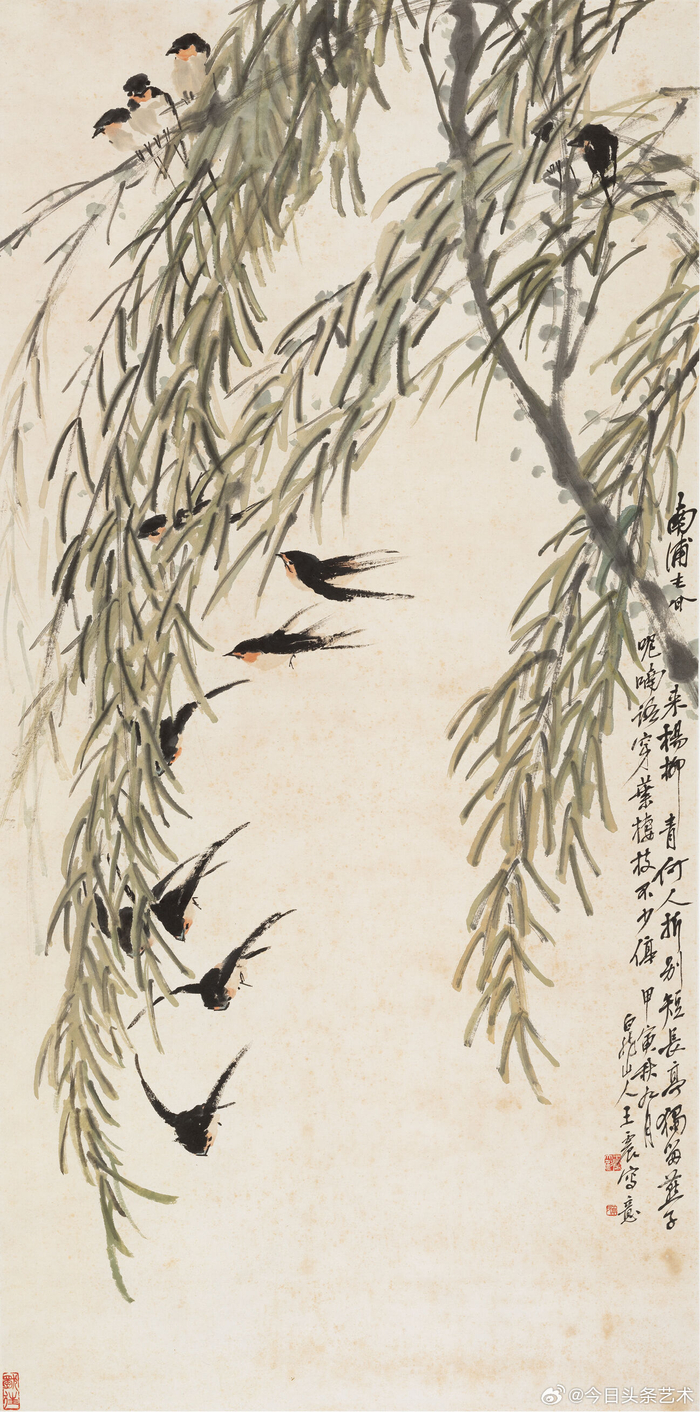 南浦春来楊柳青何人折別短長亭獨留燕子
呢喃語穿葉棲枝不少停 甲寅秋九月
白龍山人王震寫意
@今日头条艺术